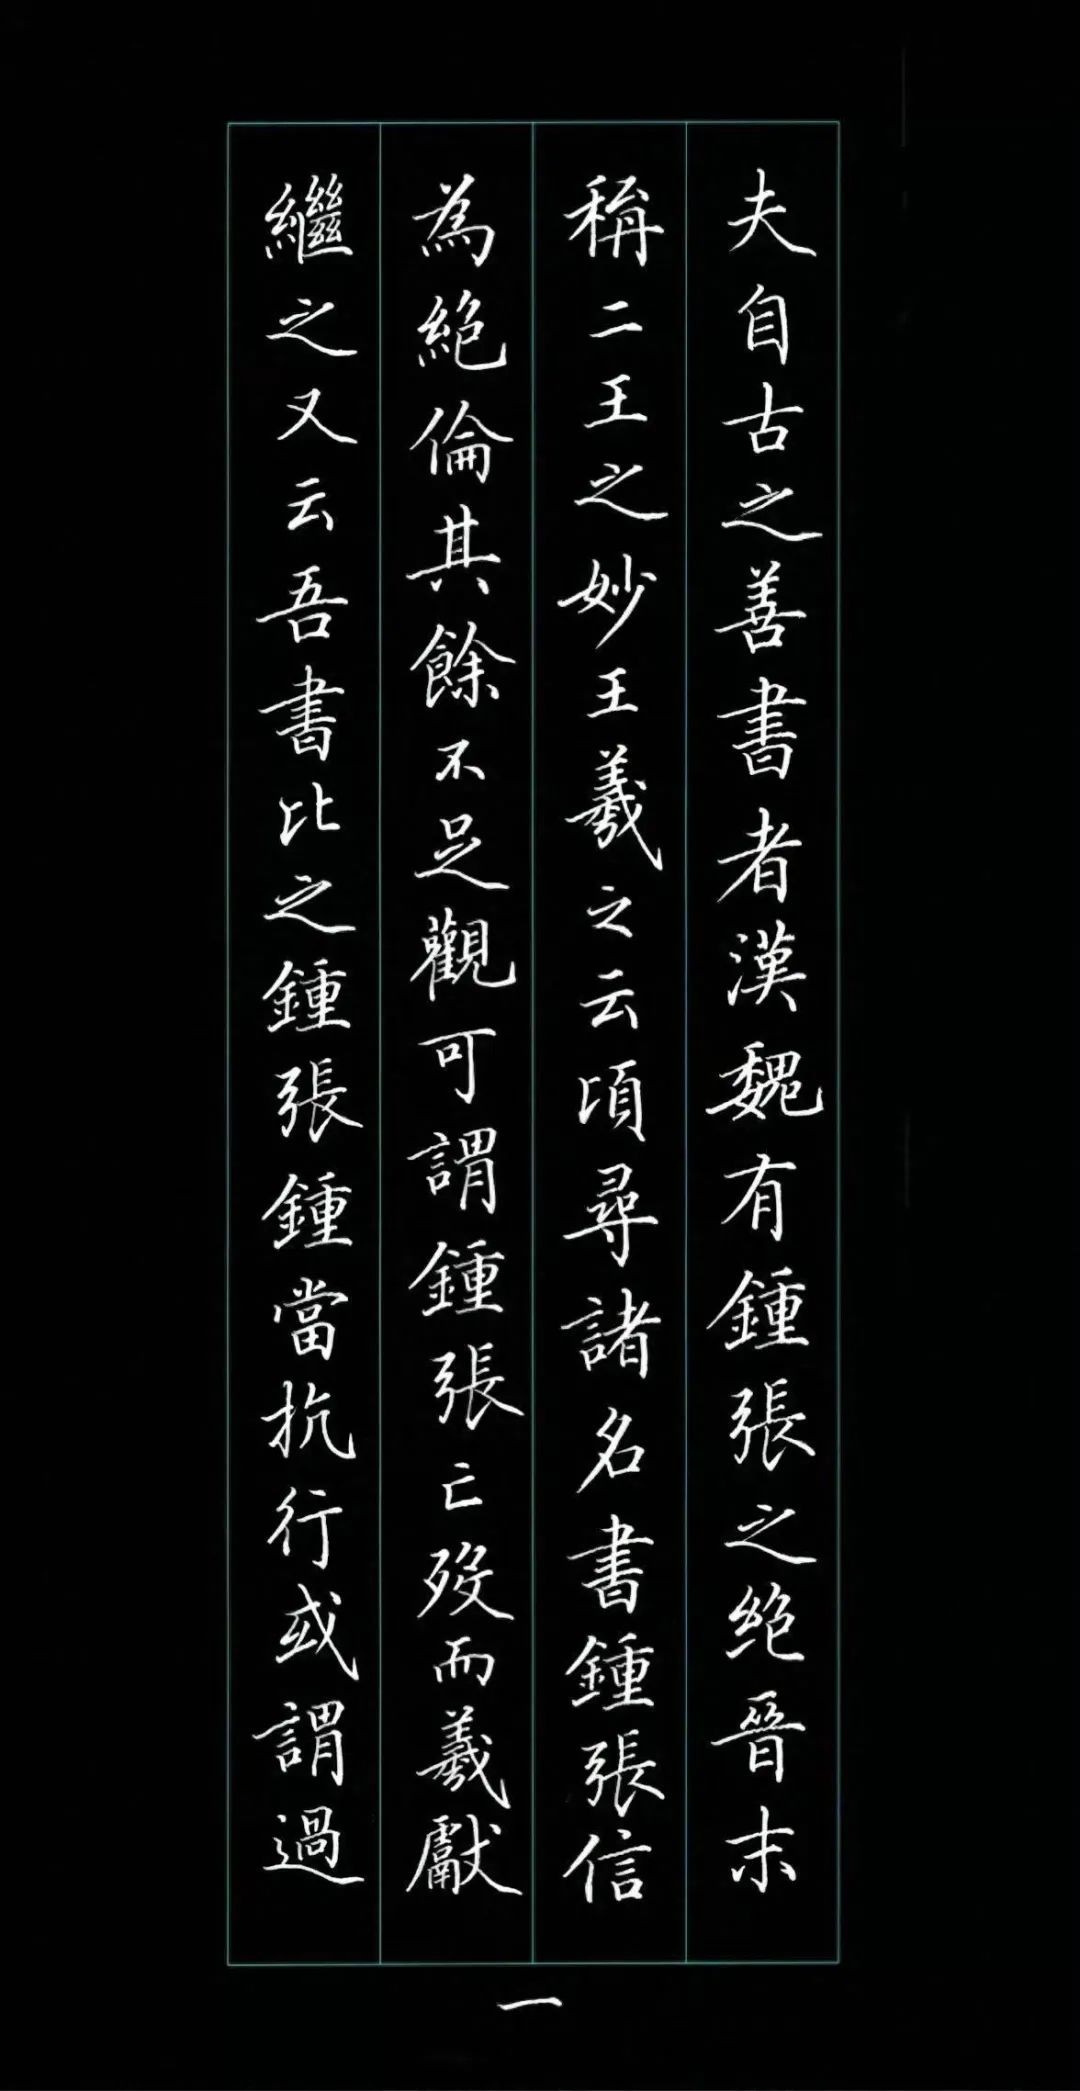 夫自古之善書者漢魏有鍾張之絶晉末
稱二王之妙王羲之云頃尋諸名書鍾張信
為絶倫其餘不足觀可謂鍾張亡歿而羲獻
繼之又云吾書比之鍾張鍾當抗行或謂過
一